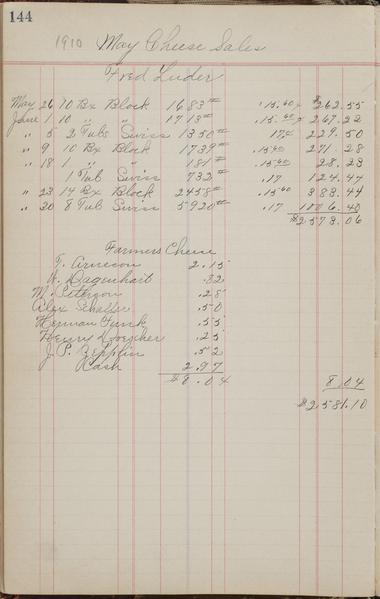 144
1910 May Cheese Sales
Fred Luder
May 26 10 Bx Block 1683# .15.60¢ $262.55
June 1 10 " " 1713# .15.60¢ 267.22
" 5 2 Tubs Swiss 1350# 17¢ 229.50
" 9 10 Bx Block 1739# .15.60 271.28
" 18 1 " " 181# .15.60 28.23
1 Tub Swiss 732# .17 124.44
" 23 14 Bx Block 2458# .15.60 383.44
" 30 8 Tub Swiss 5920# .17 1006.40
$2573.06
Farmers Cheese
T. Arneson 2.15
W. Dagenhart .82
M. Petterson .28
Alex Schaller .50
Herman Funk .55
Henry .25
J. P. Zepplin .52
Kash 2.97
$8.04 8.04
$2581.10